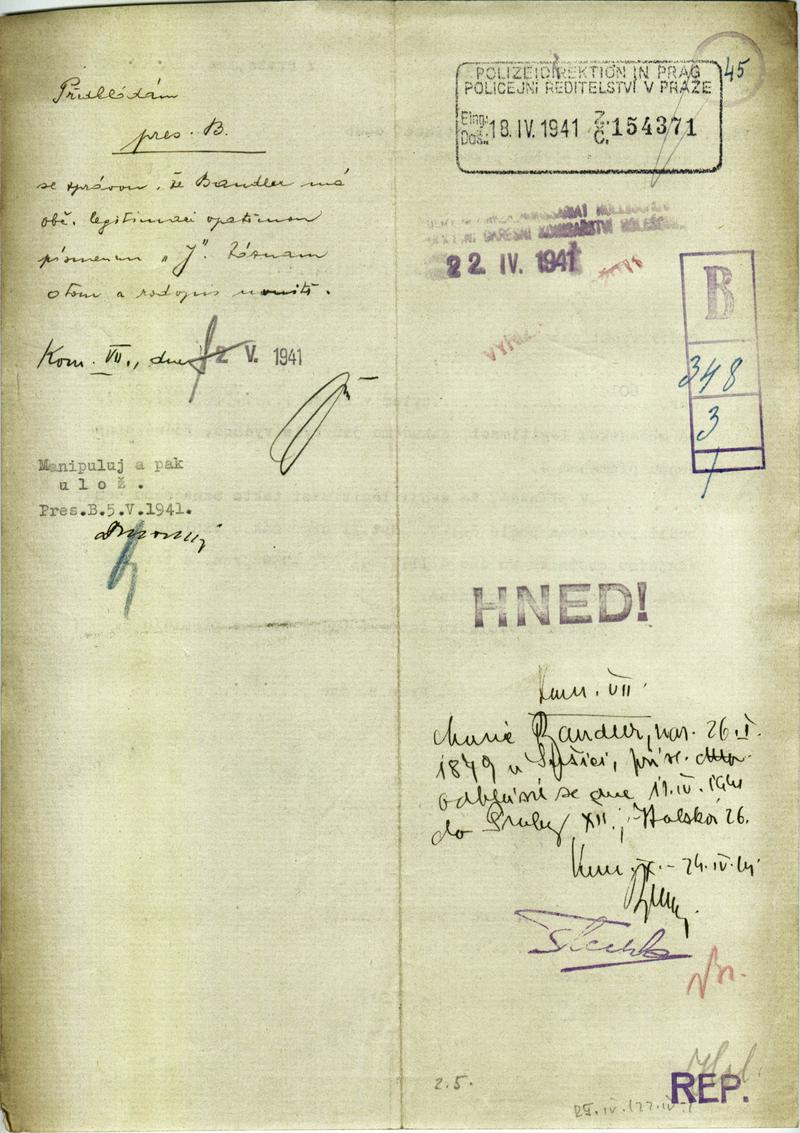 Předkládám
pres. B.
se zprávou, že Bandler má
obč. legitimaci opatřenou
písmenem „J". Záznam
o tom a rodopis
Kom. VII., dne 2 V. 1941
Manipuluj a pak
ulož.
Pres.B.5.V.1941.
45
POLIZEIDIREKTION IN PRAG
POLICEJNÍ ŘEDITELSTVÍ V PRAZE
Eing.:
Doš.: 18.IV.1941 Z. Č. 154371
OKRESNÍ KOMISAŘSTVÍ
22. IV. 1941
B
348
3
1
HNED!
Kom. VII.
Marie Bandler, nar. 26.I.
1879 v Sušici,
odhlásil se dne 11.IV.1941
do Prahy XII., Italská 26.
24.IV.41
Br.
2.5.
REP.